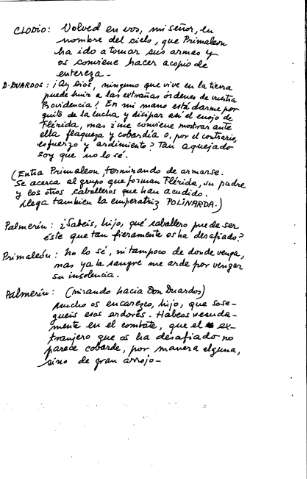 CLODIO: Volved en vos, mi señor, en
nombre del cielo, que Primaleon
ha ido a tomar sus armas y
os conviene hacer acopio de
entereza-
D. DUARDOS: ¡Ay Dios, ninguno que vive en la tierra
puede huir a las extrañas órdenes de vuestra
Providencia! En mi mano está darme por
quito de la lucha y disipar así el enojo de
Flérida, mas ¿me conviene mostrar ante
ella flaqueza y cobardía o, por el contrario,
esfuerzo y ardimiento? Tan aquejado
soy que no lo sé.
(Entra Primaleon terminando de armarse.
Se acerca al grupo que forman Flérida, su padre
y los otros caballeros que han acudido.
Llega tambien la emperatriz POLINARDA.)
Palmerin: ¿Sabeis, hijo, qué caballero puede ser
éste que tan fieramente os ha desafiado?
Primaleón: No lo sé, ni tampoco de donde venga,
mas ya la sangre me arde por vengar
su insolencia.
Palmerin: (mirando hacia Don Duardos)
Mucho os encarezco, hijo, que sose-
gueis esos ardores. Habeos
mente en el combate, que el ex-
tranjero que os ha desafiado no
parece cobarde, por manera alguna,
sino de gran arrojo-